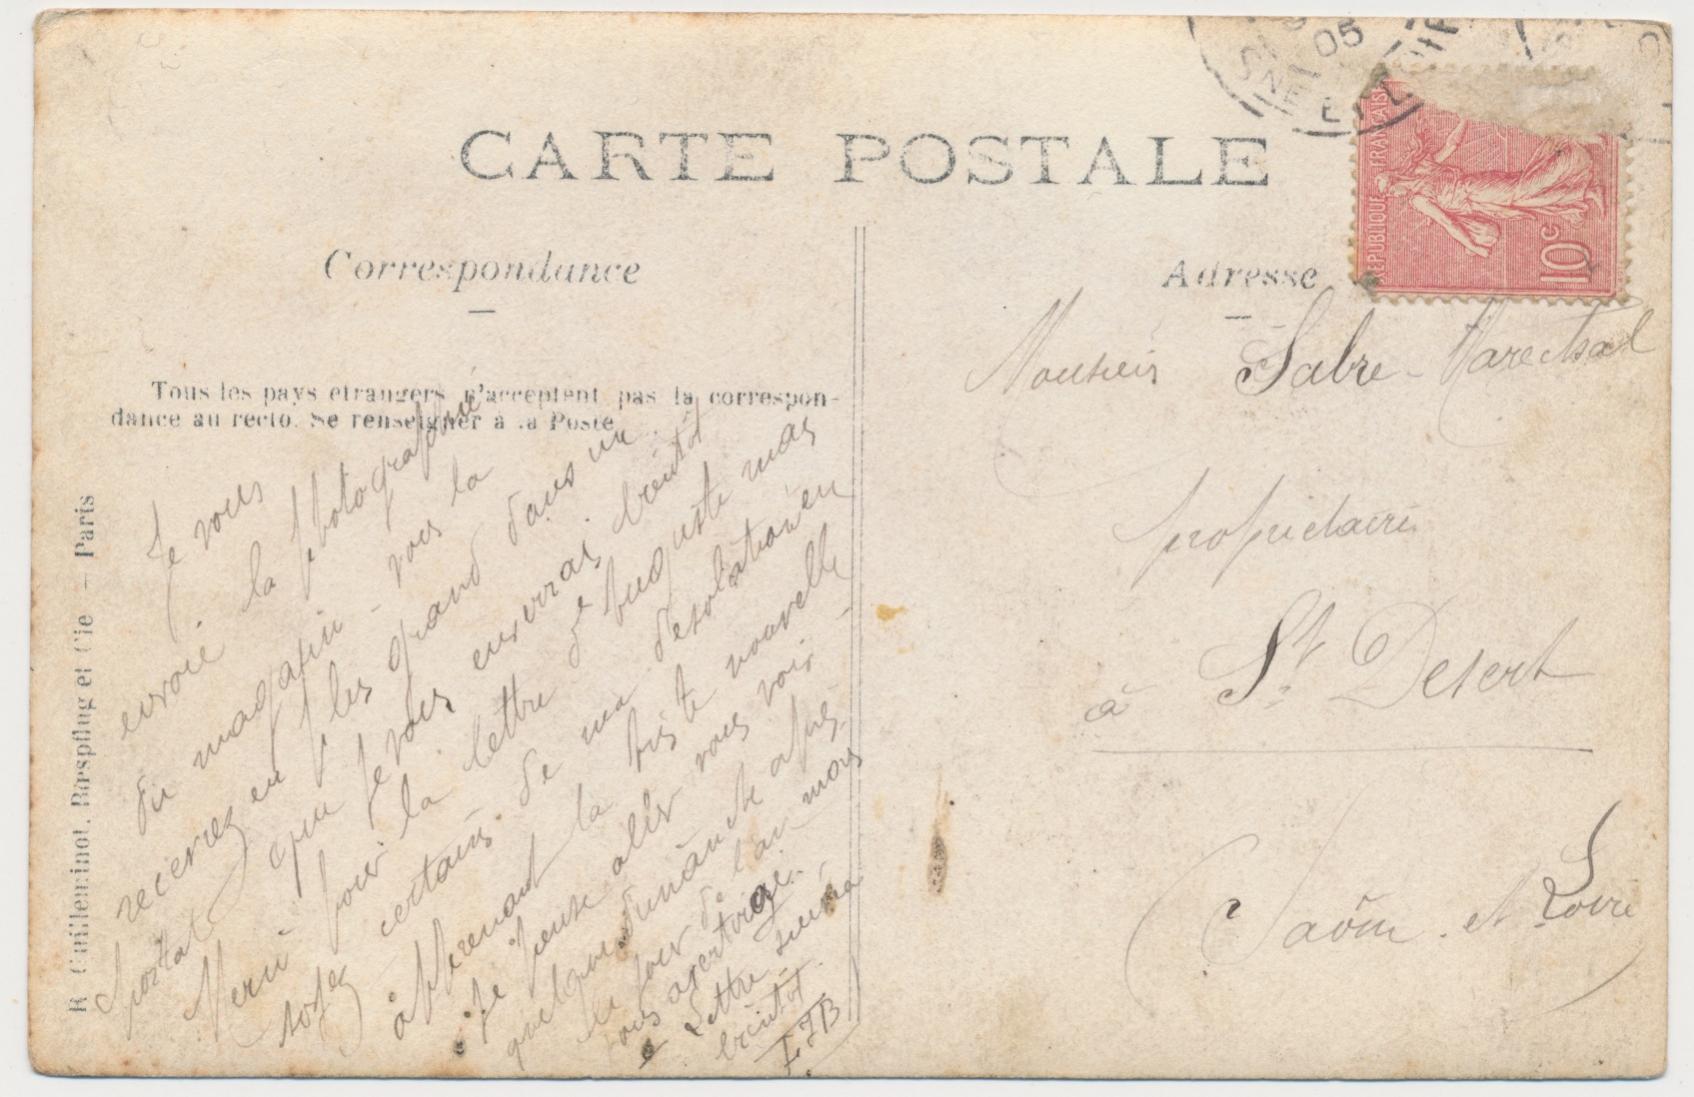 CARTE POSTALE
Correspondance
Adresse
Tous les pays etrangers n'acceptent pas la correspon-
dance au recto. Se renseigner à la Poste
R. Guilleminot, Bœspflug et Cie - Paris
REPUBLIQUE FRANÇAISE
10 c
05
Je vous
envoie la photographie
du magasin - vous la
recevrez en plus grand dans un
que je vous enverrai bientôt
Merci pour la lettre de
soyez certains de ma desolation en
apprenant la triste nouvelle
Je pense aller vous voir
quelque dimanche après
le jour de l'an mais
vous avertirai.
Lettre suivra
bientôt.
Monsieur Sabre-Marechal
propriétaire
à St Desert
Saône et Loire